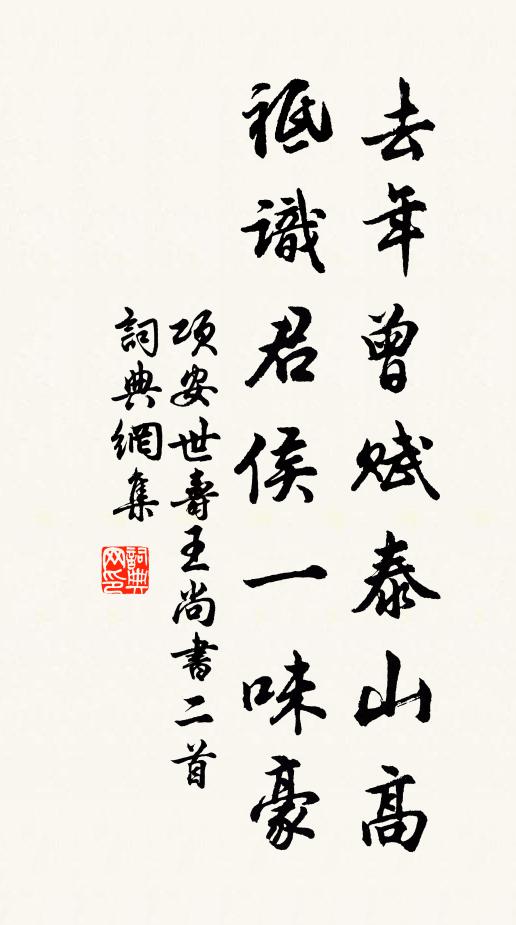 去年曾賦泰山高
祗識君侯一味豪
項安世壽王尚書二首
詞典網集
詞典网印